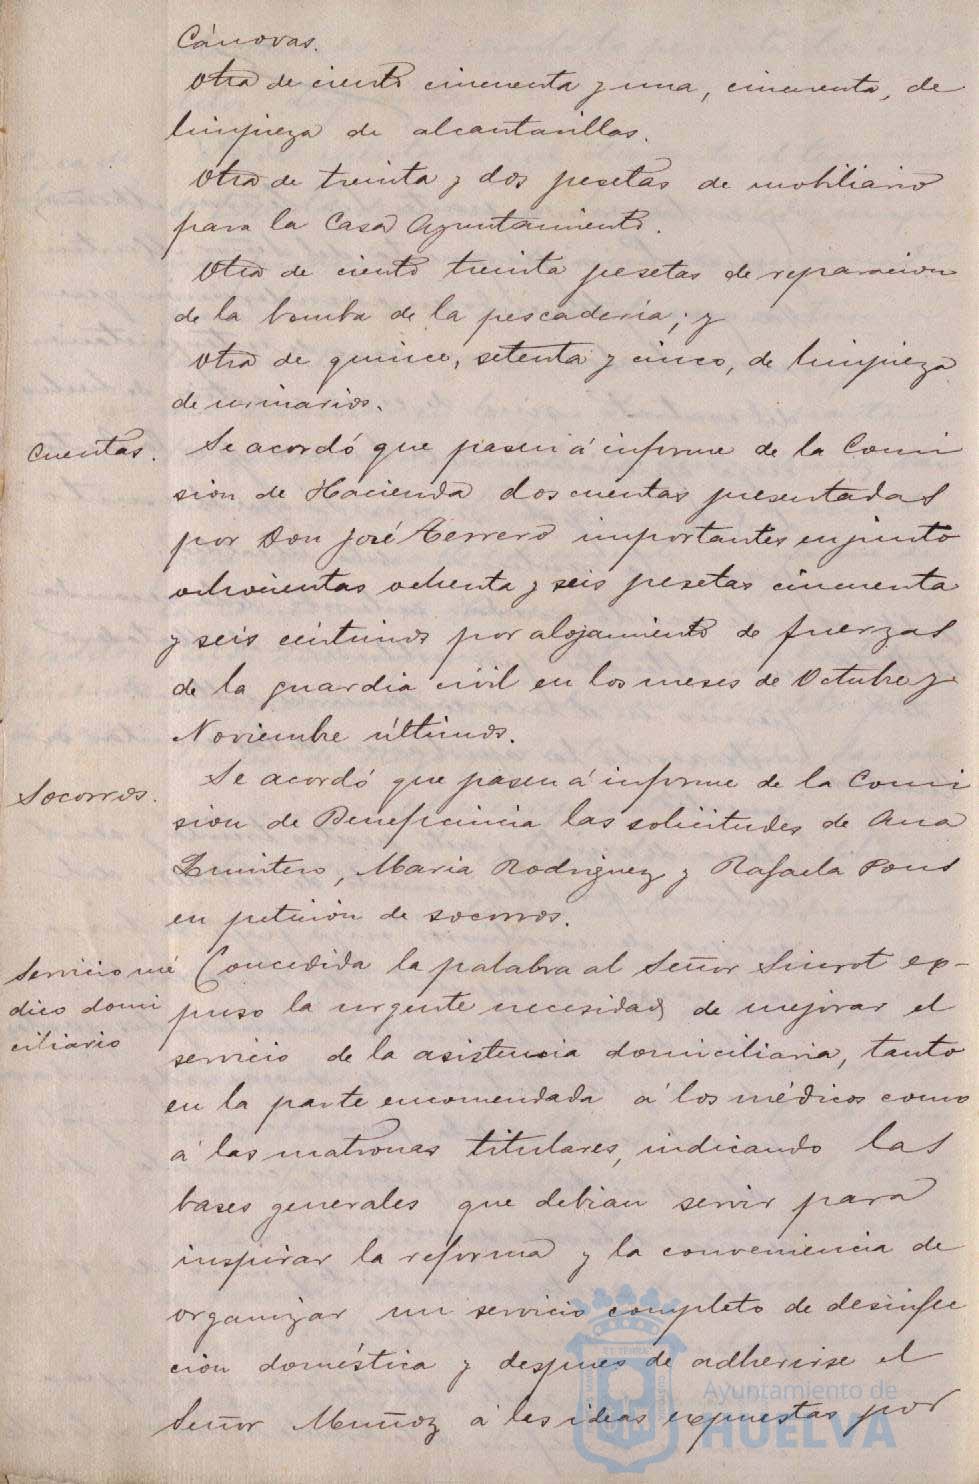 Cánovas.
Otra de ciento cincuenta y una, cincuenta, de
limpieza de alcantarillas.
Otra de treinta y dos pesetas de mobiliario
para la Casa Ayuntamiento.
Otra de ciento treinta pesetas de reparacion
de la bomba de la pescadería; y
Otra de quince, setenta y cinco, de limpieza
de urinarios.
Cuentas.
Se acordó que pasen á informe de la Comi
sion de Hacienda dos cuentas presentadas
por Don José Terrero importantes en junto
ochocientas ochenta y seis pesetas cincuenta
y seis céntimos por alojamiento de fuerzas
de la guardia civil en los meses de Octubre y
Noviembre últimos.
Socorros.
Se acordó que pasen á informe de la Comi
sion de Beneficencia las solicitudes de Ana
Quintero, Maria Rodriguez y Rafaela Pons
en petición de socorros.
Servicio mé
dico domi
ciliario
Concedida la palabra al Señor Siurot ex-
puso la urgente necesidad de mejorar el
servicio de la asistencia domiciliaria, tanto
en la parte encomendada á los médicos como
á las matronas titulares, indicando las
bases generales que debian servir para
inspirar la reforma y la conveniencia de
organizar un servicio completo de desinfec
ción doméstica y despues de adherirse el
Señor Muñoz á las ideas expuestas por
Ayuntamiento de
HUELVA